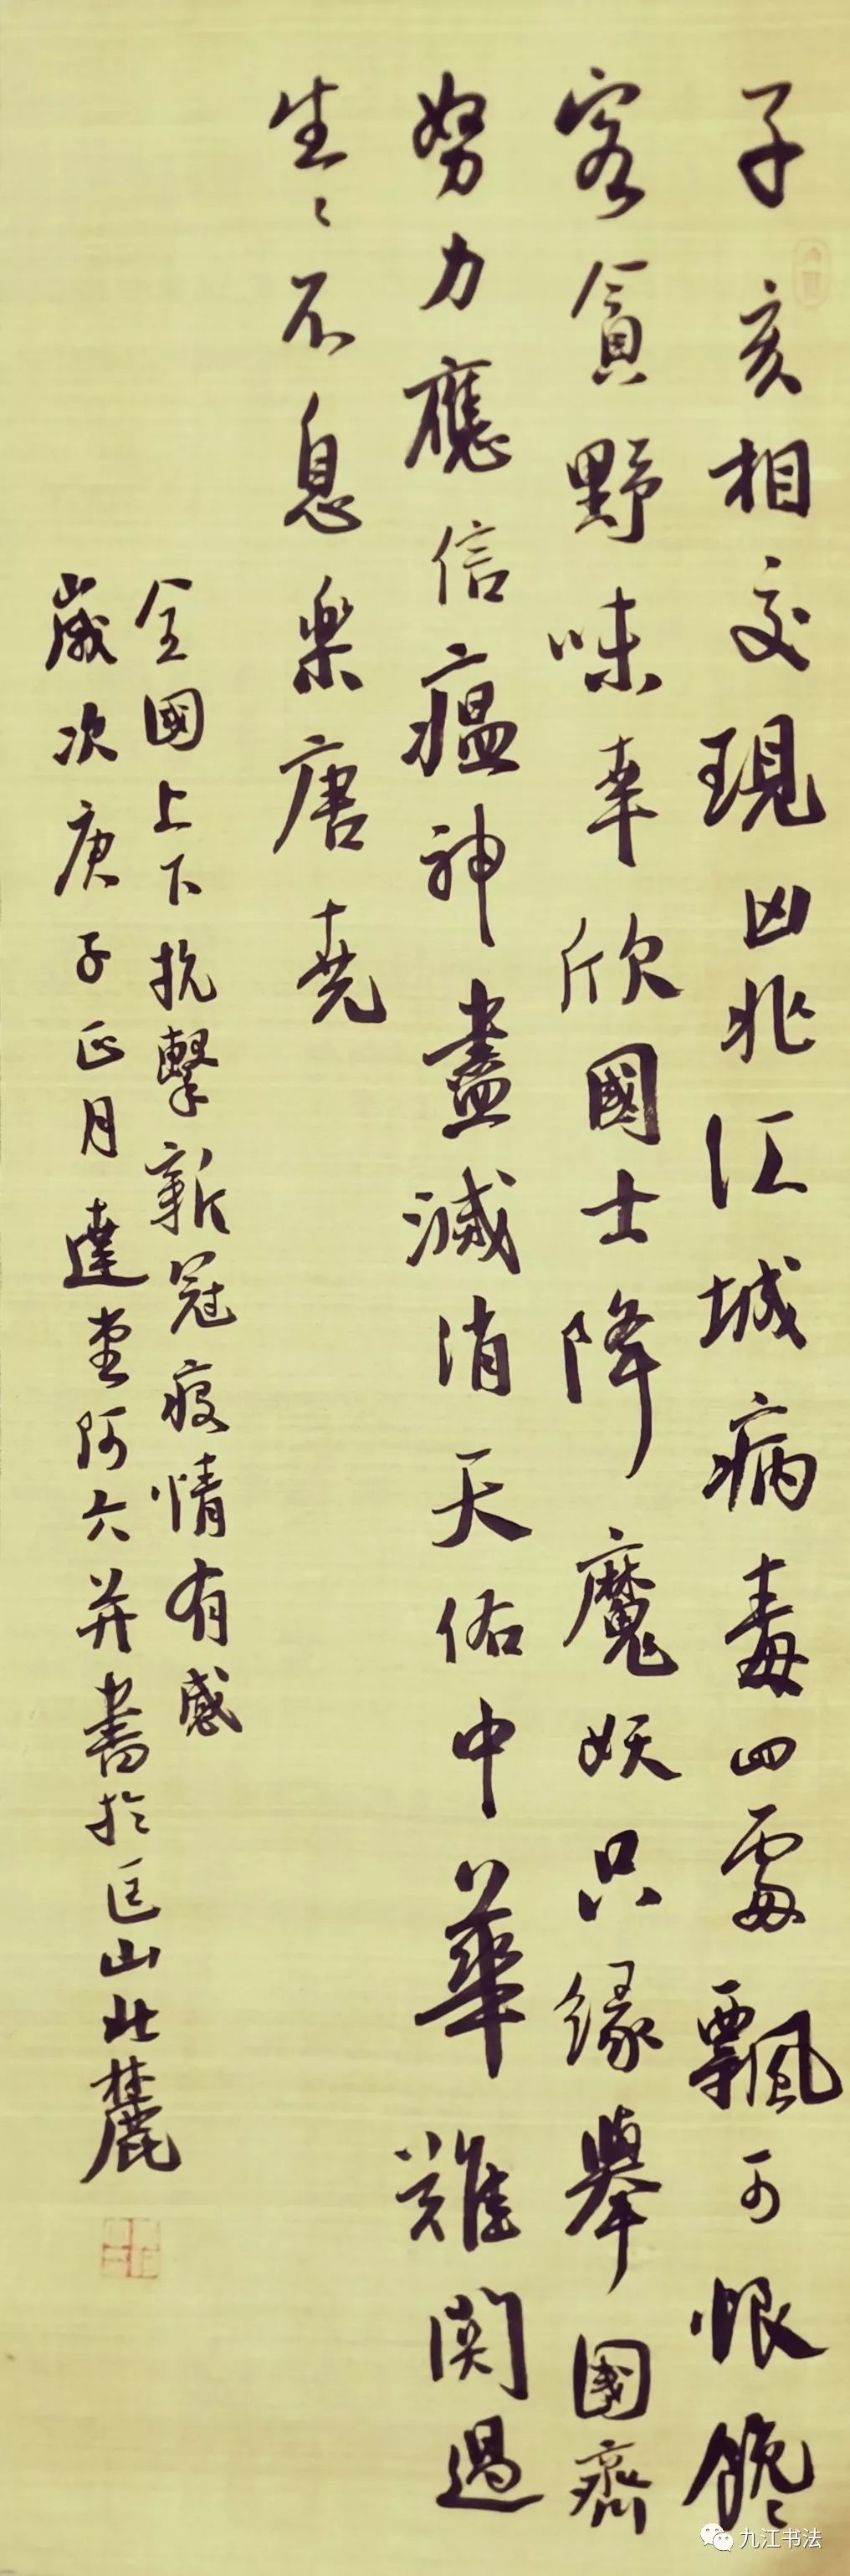 子亥相交現凶兆江城病毒四處飄可恨饞
客貪野味幸欣國士降魔妖只緣舉國齊
努力應信瘟神盡滅消天佑中華難関過
生々不息樂唐堯
全國上下抗擊新冠疫情有感
歲次庚子正月達堂阿六并書於匡山北麓
九江书法